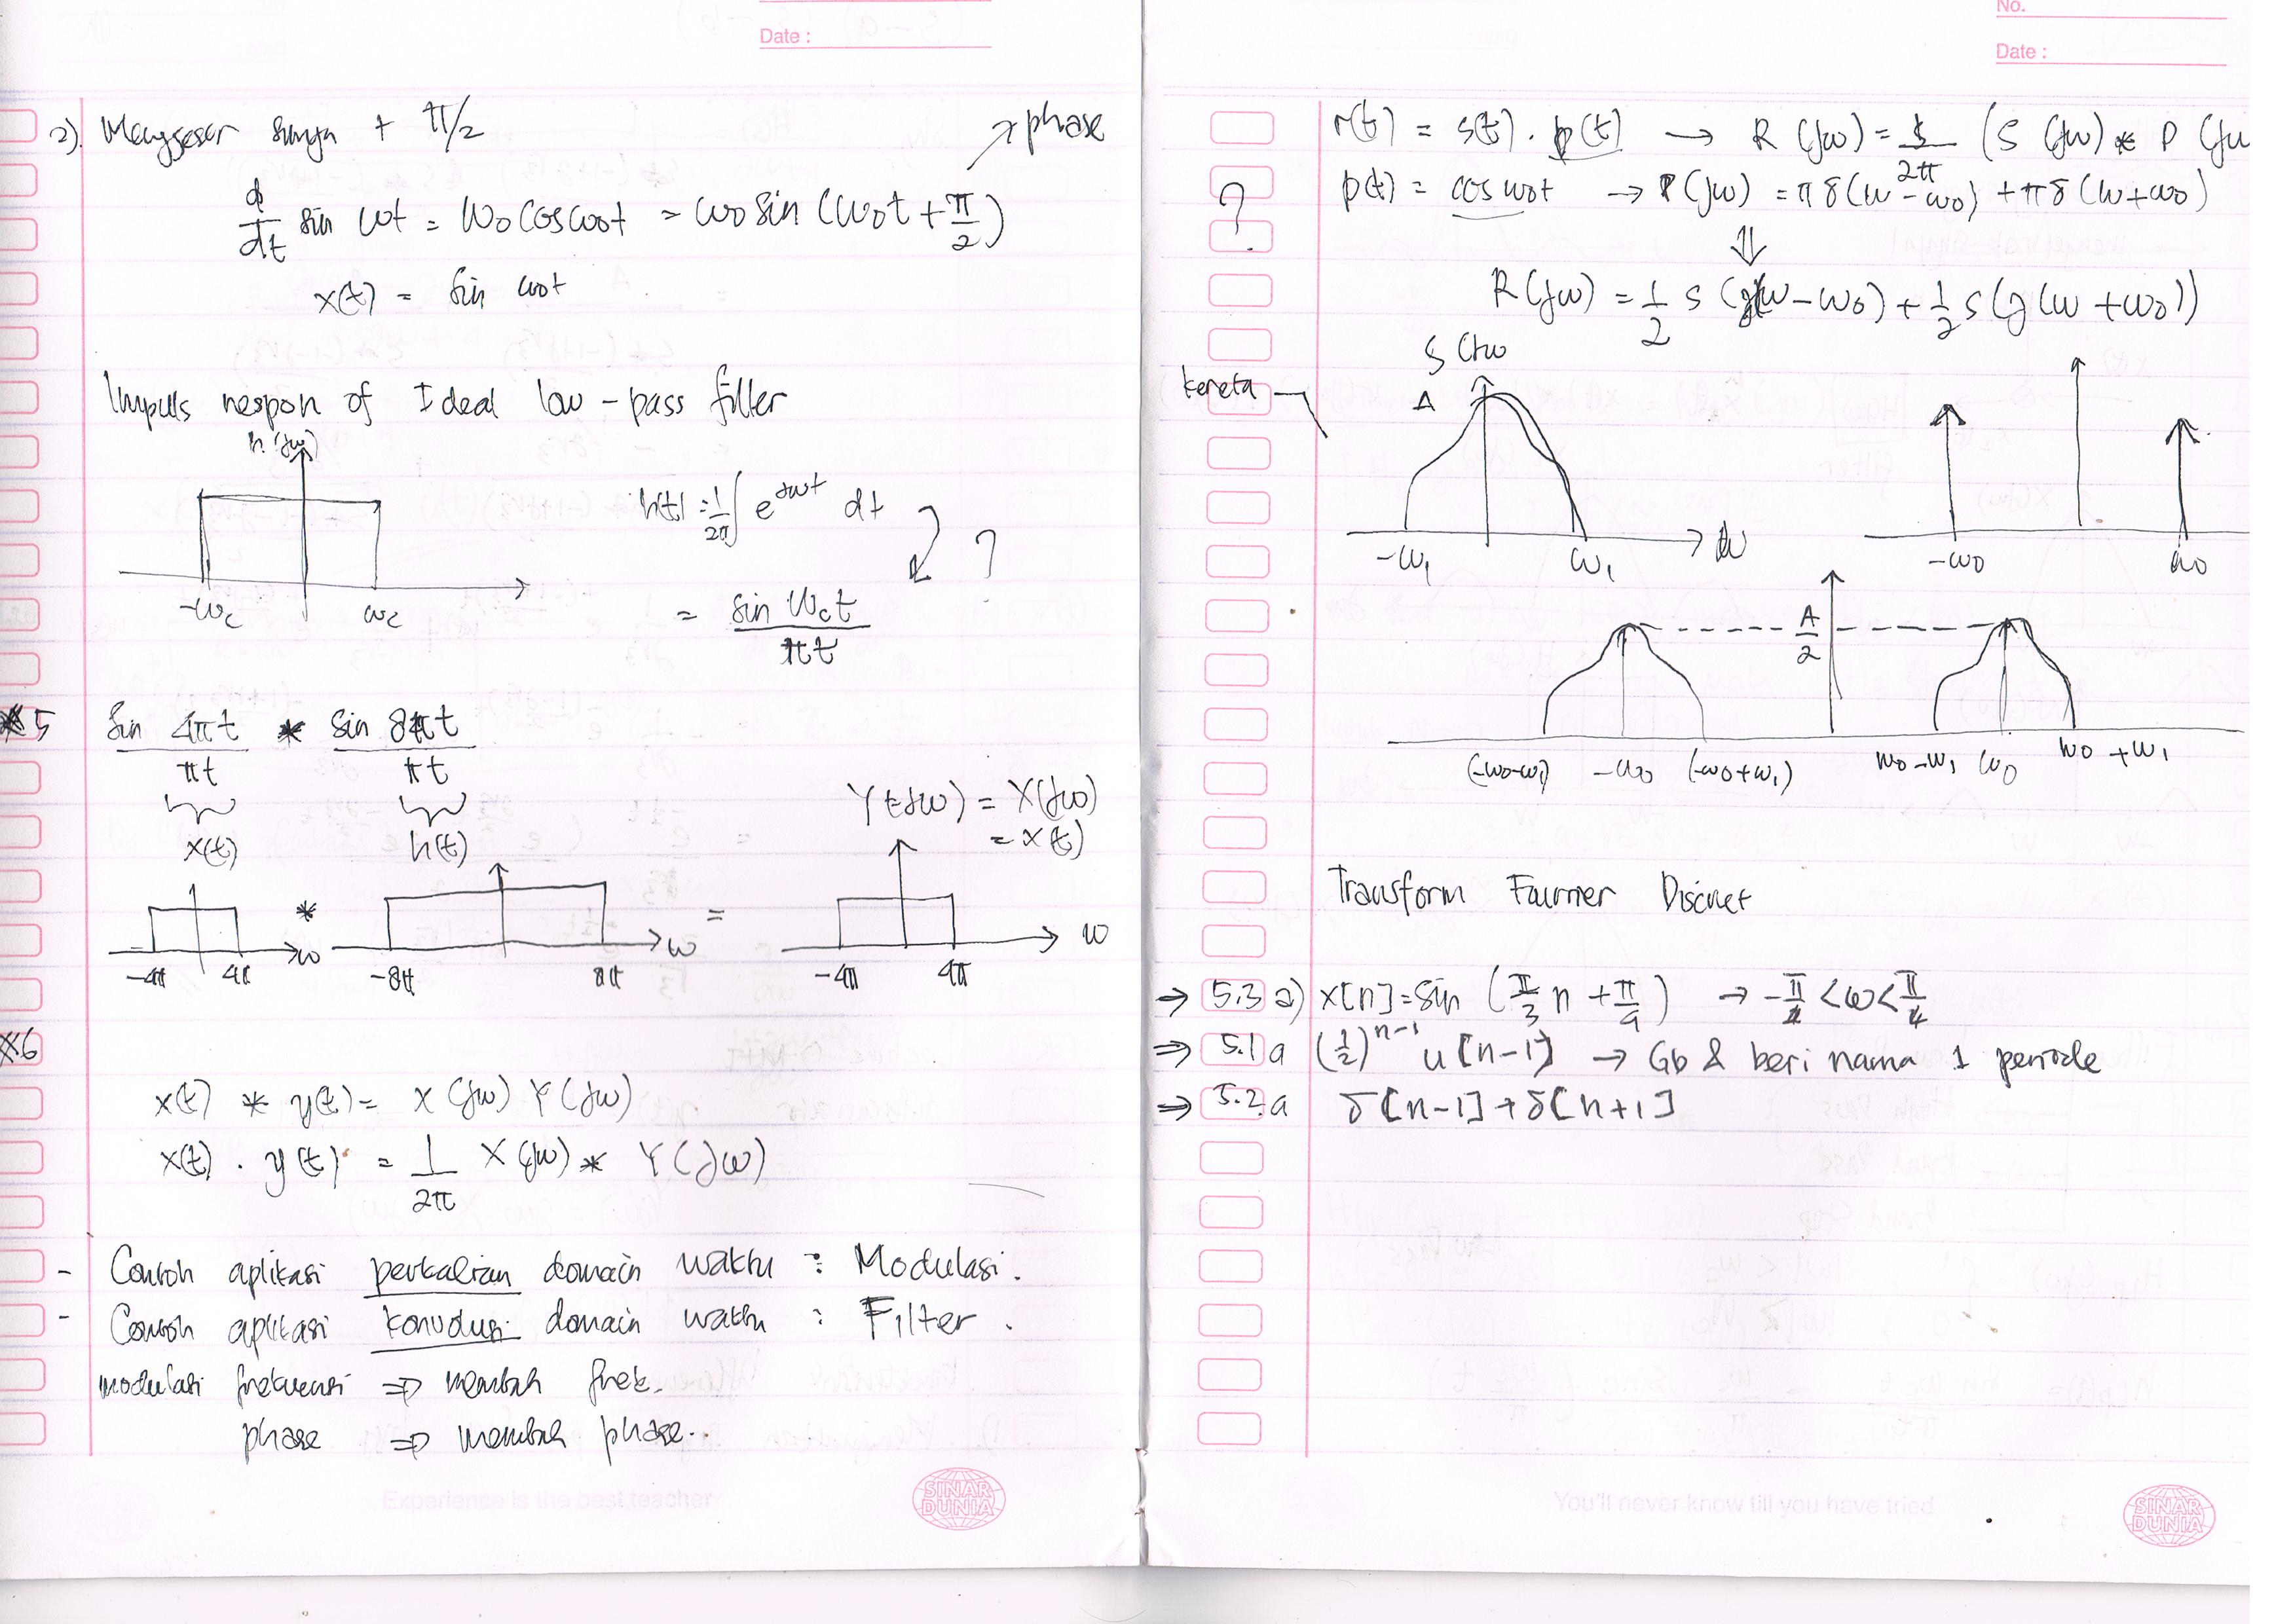 Date :
2). Menggeser sinyal + π/2
→ phase
d/dt sin ωt = ω0 cos ω0t = ω0 sin (ω0t + π/2)
x(t) = sin ω0t
Impuls respon of Ideal low-pass filter
h(jω)
-ωc ωc
h(t) = 1/2π ∫ e^jωt dt
?
= sin ωct / πt
*5 sin 4πt / πt * sin 8πt / πt
x(t) h(t)
Y(jω) = X(jω)
= x(t)
* =
-4π 4π ω -8π 8π ω -4π 4π ω
*6
x(t) * y(t) = X(jω) Y(jω)
x(t) . y(t) = 1/2π X(jω) * Y(jω)
- Contoh aplikasi perkalian domain waktu : Modulasi.
- Contoh aplikasi konvolusi domain waktu : Filter.
modulasi frekuensi ⇒ merubah frek.
phase ⇒ merubah phase..
Experience is the best teacher
SINAR DUNIA
No.
Date :
r(t) = s(t) . p(t) → R(jω) = 1/2π (S(jω) * P(jω
? p(t) = cos ω0t → P(jω) = πδ(ω-ω0) + πδ(ω+ω0)
⇓
R(jω) = 1/2 S(j(ω-ω0) + 1/2 S(j(ω+ω0))
S(jω
kereta
A
-ω1 ω1 ω
-ω0 ω0
A/2
(-ω0-ω1) -ω0 (-ω0+ω1) ω0-ω1 ω0 ω0+ω1
Transform Fourrier Discret
→ 5.3 a) x[n] = sin (π/3 n + π/4) → -π/4 < ω < π/4
⇒ 5.1 a (1/2)^n-1 u[n-1] → Gb & beri nama 1 periode
⇒ 5.2.a δ[n-1] + δ[n+1]
You'll never know till you have tried
SINAR DUNIA